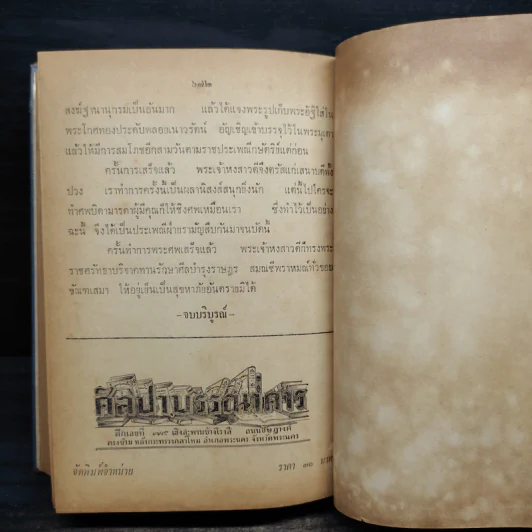 ๖๗๒
สงฆ์ฐานานุกรมเป็นอันมาก แล้วได้แจงพระรูปเก็บพระอัฐิใส่ใน
พระโกศทองประดับพลอยเนาวรัตน์ อัญเชิญเข้าบรรจุไว้ในพระมุเตา
แล้วให้มีการสมโภชอีกสามวันตามราชประเพณีกษัตริย์แต่ก่อน
ครั้นการเสร็จแล้ว พระเจ้าหงสาวดีจึงตรัสแก่เสนาบดีทั้ง
ปวง เราทำการครั้งนี้เป็นผลานิสงส์สนุกยิ่งนัก แต่นี้ไปใครจะ
ทำศพบิดามารดาผู้มีคุณก็ให้ชิงศพเหมือนเรา ซึ่งทำไว้เป็นอย่าง
ฉะนี้ จึงได้เป็นประเพณีฝ่ายรามัญสืบกันมาจนบัดนี้
ครั้นทำการพระศพเสร็จแล้ว พระเจ้าหงสาวดีก็ทรงพระ
ราชศรัทธาบริจาคทานรักษาศีลบำรุงราษฎร สมณชีพราหมณ์ทั่วขอบ
ขัณฑเสมา ให้อยู่เย็นเป็นสุขหาภัยอันตรายมิได้
-จบบริบูรณ์-
ศิลปาบรรณาคาร
ตึกเลขที่ เชิงสะพานช้างโรงสี ถนนอัษฎางค์
ตรงข้าม อำเภอพระนคร จังหวัดพระนคร
จัดพิมพ์จำหน่าย ราคา ๓๐ บาท